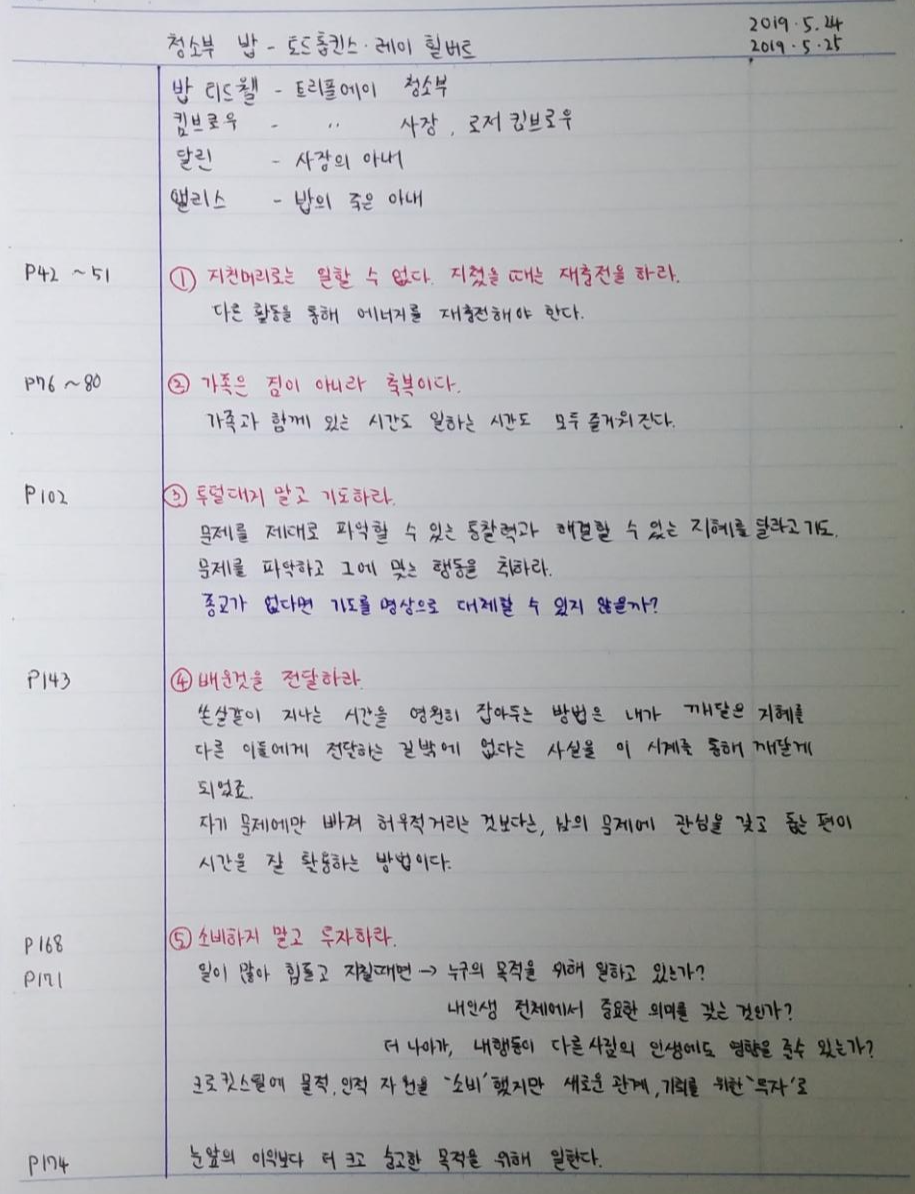 2019.5.24
청소부 밥 - 토드홉킨스·레이 힐버트 2019.5.25
밥 티드웰 - 트리플에이 청소부
킴브로우 - 〃 사장, 로저 킴브로우
달린 - 사장의 아내
앨리스 - 밥의 죽은 아내
P42 ~ 51 ① 지친머리로는 일할 수 없다. 지쳤을 때는 재충전을 하라.
다른 활동을 통해 에너지를 재충전해야 한다.
P76 ~ 80 ② 가족은 짐이 아니라 축복이다.
가족과 함께 있는 시간도 일하는 시간도 모두 즐거워진다.
P102 ③ 투덜대지 말고 기도하라.
문제를 제대로 파악할 수 있는 통찰력과 해결할 수 있는 지혜를 달라고 기도.
문제를 파악하고 그에 맞는 행동을 취하라.
종교가 없다면 기도를 명상으로 대체할 수 있지 않을까?
P143 ④ 배운것을 전달하라.
쏜살같이 지나는 시간을 영원히 잡아두는 방법은 내가 깨달은 지혜를
다른 이들에게 전달하는 길밖에 없다는 사실을 이 시계를 통해 깨달게
되었죠.
자기 문제에만 빠져 허우적거리는 것보다는, 남의 문제에 관심을 갖고 돕는 편이
시간을 잘 활용하는 방법이다.
P168 ⑤ 소비하지 말고 투자하라.
P171 일이 많아 힘들고 지칠때면 → 누구의 목적을 위해 일하고 있는가?
내인생 전체에서 중요한 의미를 갖는 것인가?
더 나아가, 내행동이 다른사람의 인생에도 영향을 줄수 있는가?
크로킷스틸에 물적, 인적 자원을 '소비'했지만 새로운 관계, 기회를 위한 '투자'로
P174 눈앞의 이익보다 더 크고 숭고한 목적을 위해 일한다.